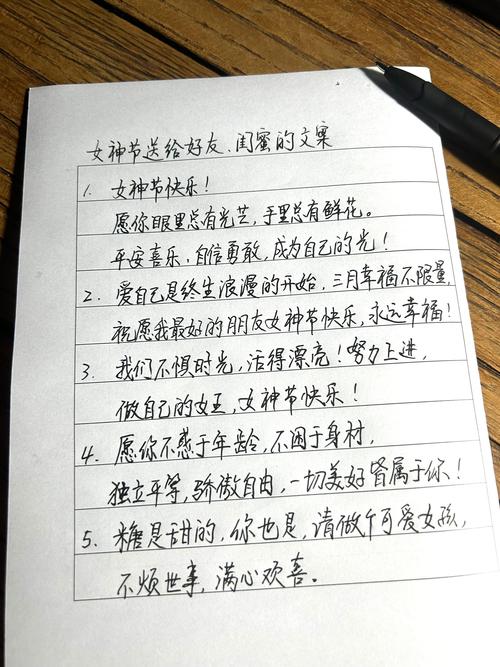 女神节送给好友、闺蜜的文案
1. 女神节快乐!
愿你眼里总有光芒,手里总有鲜花。
平安喜乐,自信勇敢,成为自己的光!
2. 爱自己是终生浪漫的开始,三月幸福不限量,
祝愿我最好的朋友女神节快乐,永远幸福!
3. 我们不惧时光,活得漂亮!努力上进,
做自己的女王,女神节快乐!
4. 愿你不惑于年龄,不困于身材,
独立平等,骄傲自由,一切美好皆属于你!
5. 糖是甜的,你也是,请做个可爱女孩,
不烦世事,满心欢喜。